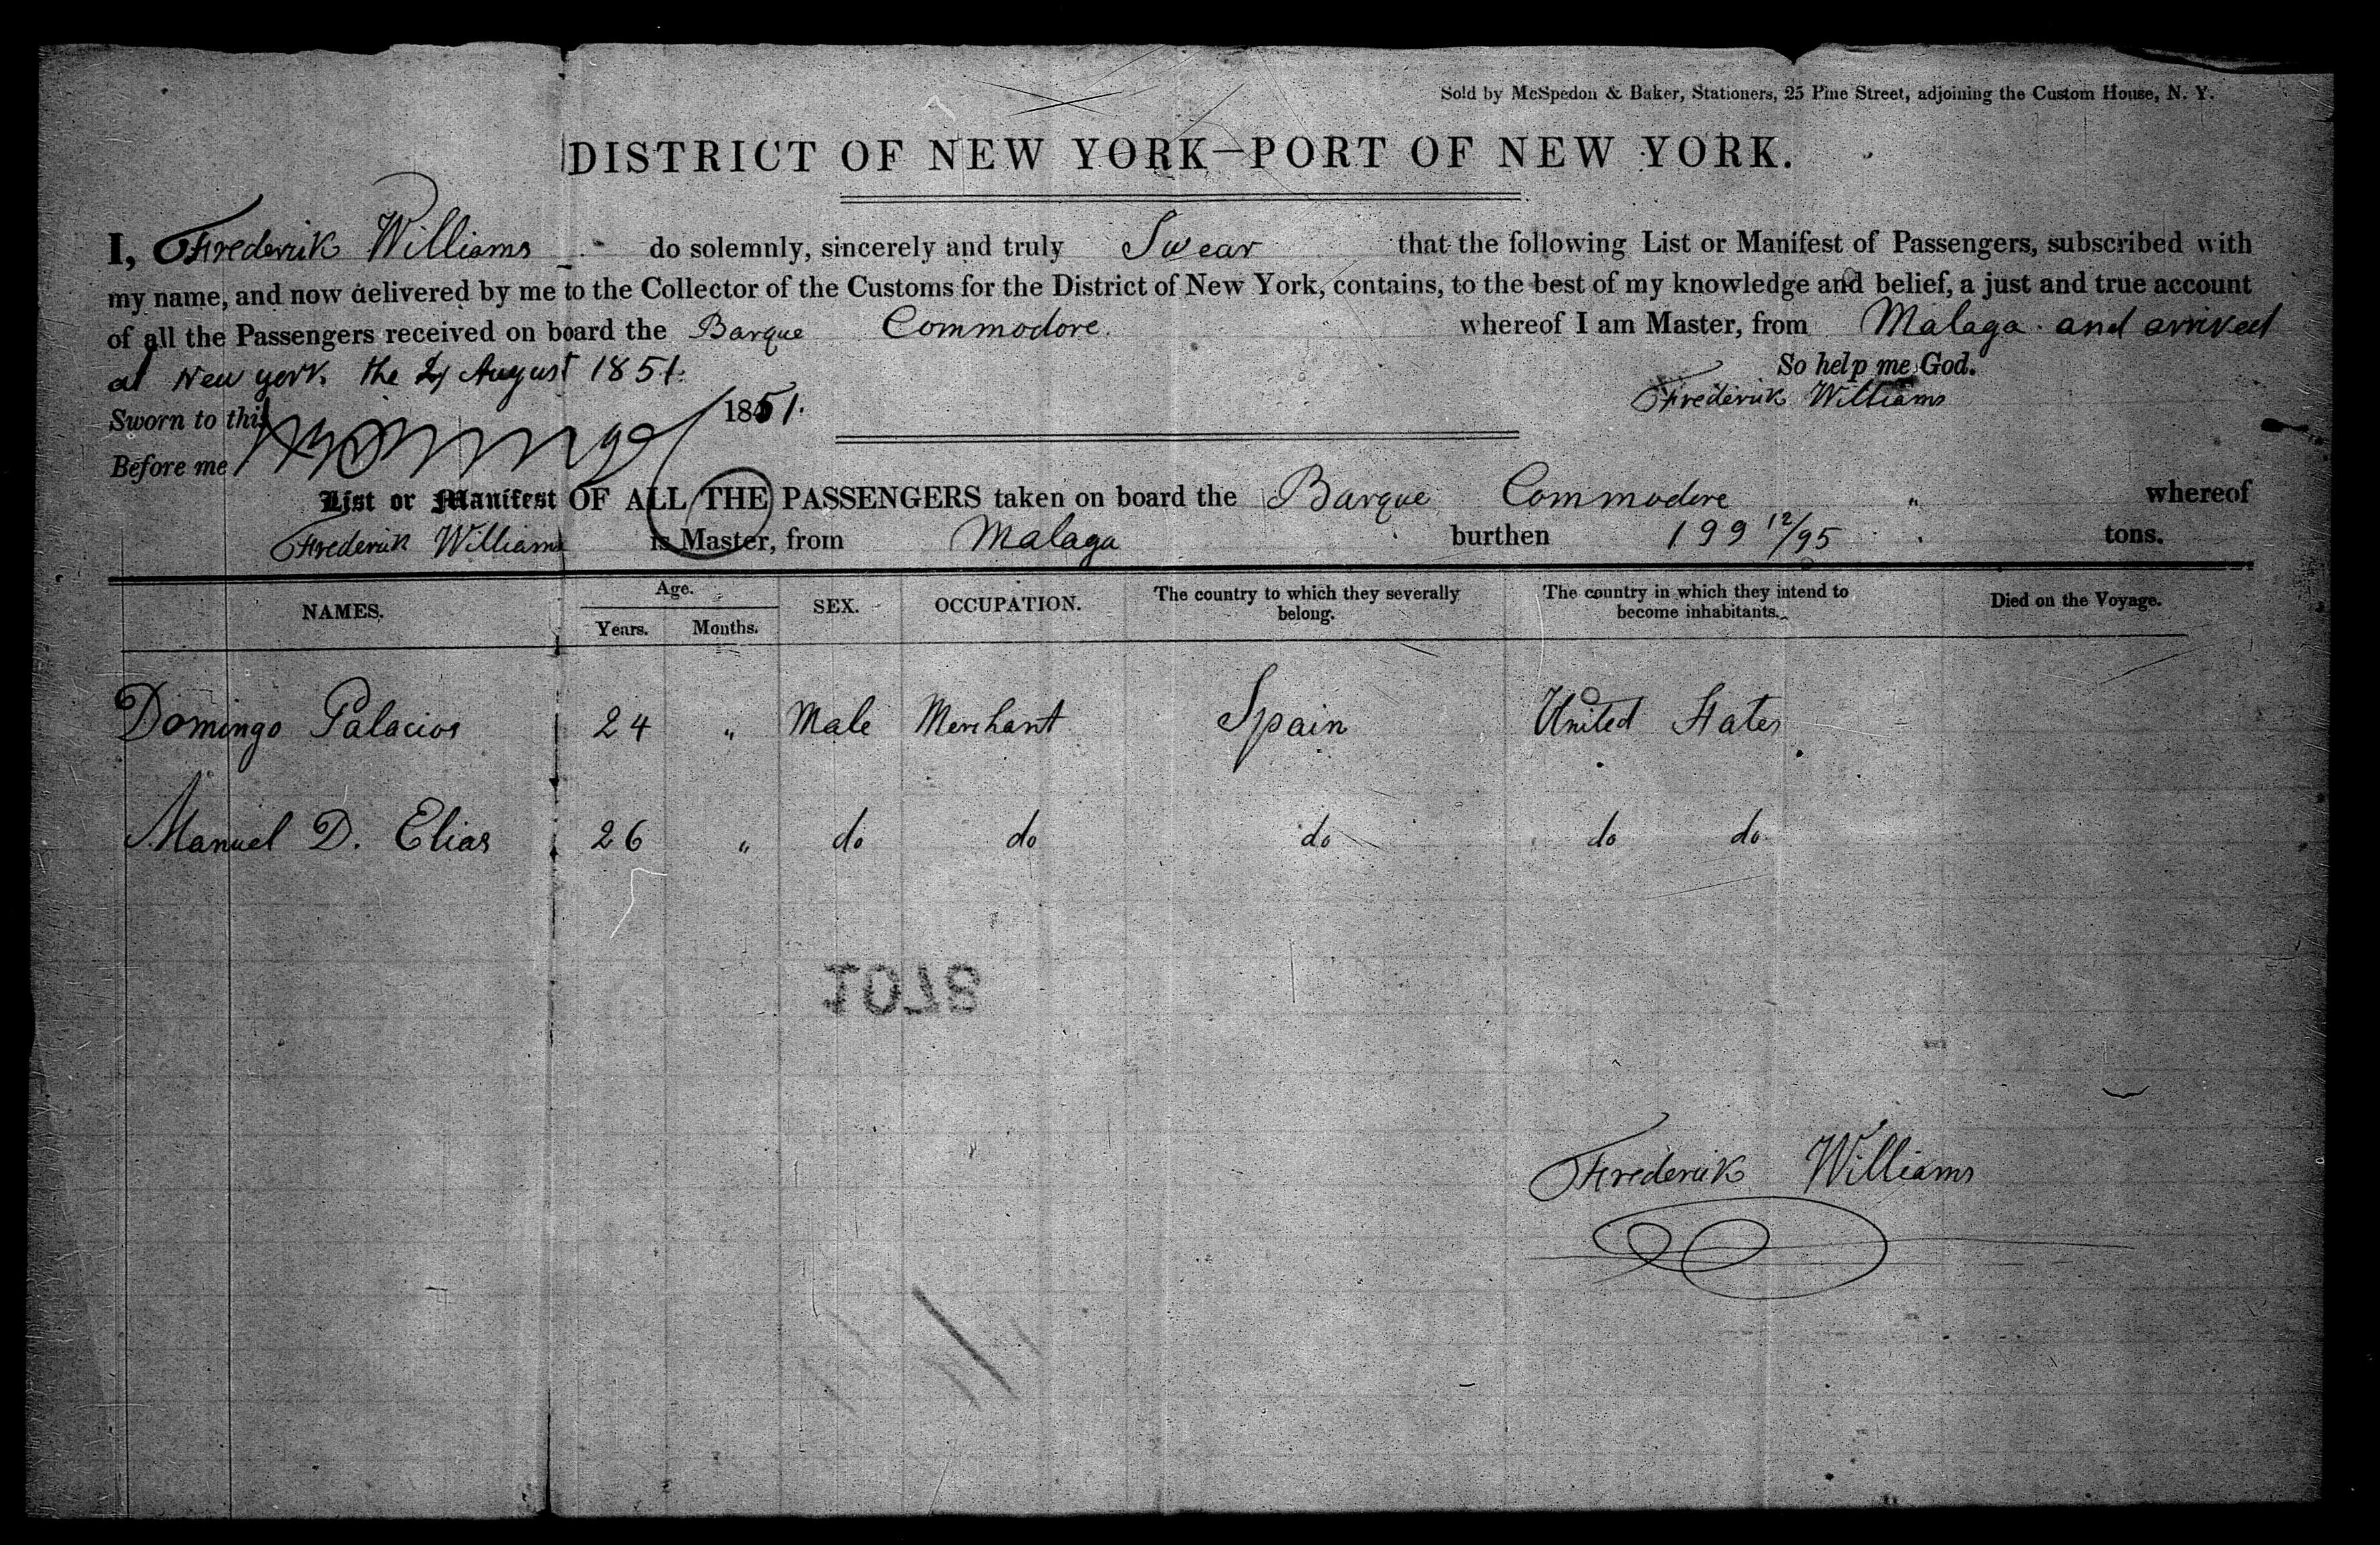 Sold by McSpedon & Baker, Stationers, 25 Pine Street, adjoining the Custom House, N. Y.
DISTRICT OF NEW YORK—PORT OF NEW YORK.
I, Frederick Williams do solemnly, sincerely and truly Swear that the following List or Manifest of Passengers, subscribed with
my name, and now delivered by me to the Collector of the Customs for the District of New York, contains, to the best of my knowledge and belief, a just and true account
of all the Passengers received on board the Barque Commodore. whereof I am Master, from Malaga and arrived
at New york the August 1851.
So help me God.
Sworn to this 1851.
Frederick Williams
Before me
List or Manifest OF ALL THE PASSENGERS taken on board the Barque Commodore " whereof
Frederick Williams is Master, from Malaga burthen 199 12/95 tons.
NAMES. Age. Years. Months. SEX. OCCUPATION. The country to which they severally belong. The country in which they intend to become inhabitants. Died on the Voyage.
Domingo Palacios 24 " Male Merchant Spain United States
Manuel D. Elias 26 " do do do do do
8701
Frederick Williams